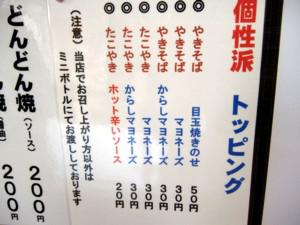 個性派 トッピング
◎ やきそば 目玉焼きのせ 50円
◎ やきそば マヨネーズ 30円
◎ やきそば からしマヨネーズ 30円
◎ たこやき マヨネーズ 30円
◎ たこやき からしマヨネーズ 30円
◎ たこやき ホット辛いソース 20円
（注意）当店でお召し上がり方以外は
ミニボトルにてお渡ししております
どんどん焼（ソース） 200円
ん焼（醤油） 200円